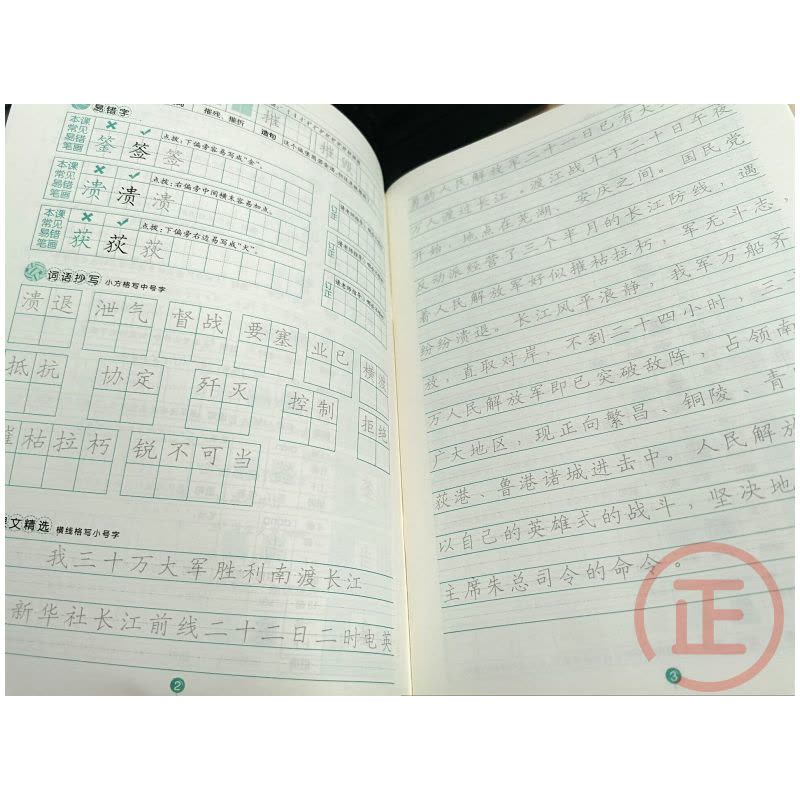 易错字
摧残、摧折
造句
本课常见易错笔画
签 签 签
点拨:下偏旁容易写成“金”。
本课常见易错笔画
溃 溃 溃
点拨:右偏旁中间横末容易加点。
本课常见易错笔画
荻 荻 荻
点拨:下偏旁右边易写成“犬”。
订正
订正
订正
词语抄写 小方格写中号字
溃退 泄气 督战 要塞 业已 横渡
抵抗 协定 歼灭 控制 拒绝
摧枯拉朽 锐不可当
课文精选 横线格写小号字
我三十万大军胜利南渡长江
新华社长江前线二十二日二时电英
2
勇的人民解放军二十一日已有大
万人渡过长江。渡江战斗于二十日午夜
开始,地点在芜湖、安庆之间。国民党
反动派经营了三个半月的长江防线,遇
着人民解放军好似摧枯拉朽,军无斗志,
纷纷溃退。长江风平浪静,我军万船齐
放,直取对岸,不到二十四小时,三十
万人民解放军即已突破敌阵,占领南
广大地区,现正向繁昌、铜陵、青
荻港、鲁港诸城进击中。人民解放
以自己的英雄式的战斗,坚决地
主席朱总司令的命令。
3
正